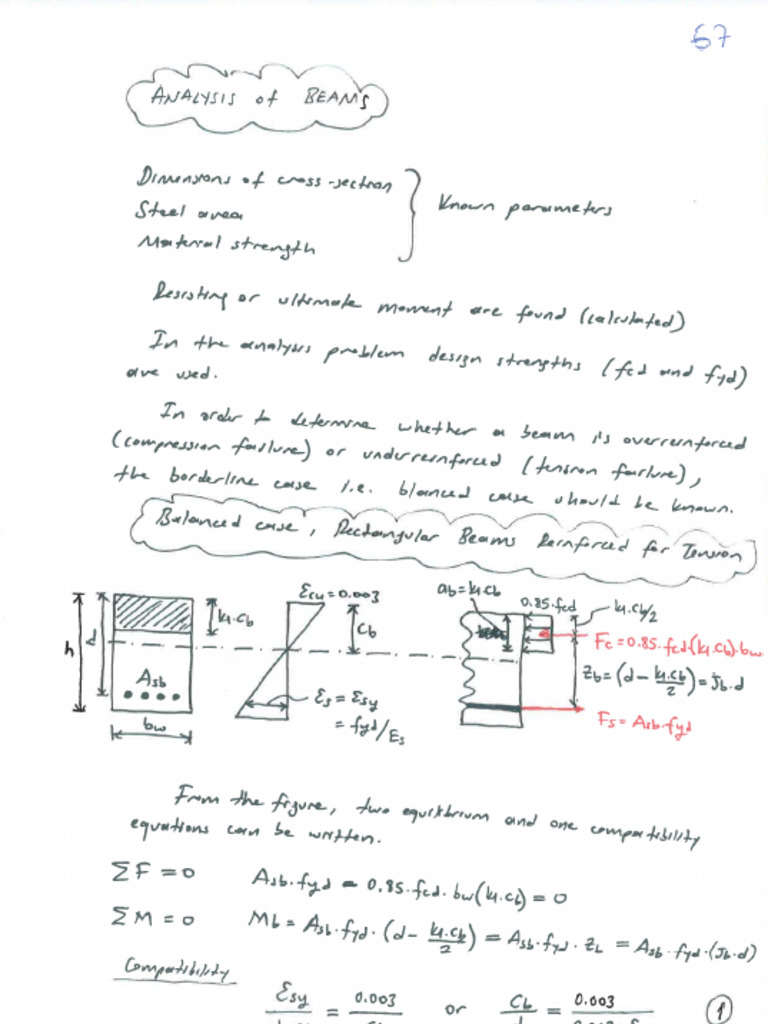 57
ANALYSIS of BEAMS
Dimensions of cross-section
Steel area
Material strength
Known parameters
Resisting or ultimate moment are found (calculated)
In the analysis problem design strengths (fcd and fyd)
are used.
In order to determine whether a beam is overreinforced
(compression failure) or underreinforced (tension failure),
the borderline case i.e. blanced case should be known.
Balanced case, Rectangular Beams Reinforced for Tension
h
d
Asb
bw
k1.cb
εcu = 0.003
cb
εs = εsy
= fyd/Es
ab = k1.cb
0.85.fcd
k1.cb/2
Fc = 0.85.fcd.(k1.cb).bw
Zb = (d - k1.cb/2) = jb.d
Fs = Asb.fyd
From the figure, two equilibrium and one compatibility
equations can be written.
ΣF = 0 Asb.fyd - 0.85.fcd.bw(k1.cb) = 0
ΣM = 0 Mb = Asb.fyd.(d - k1.cb/2) = Asb.fyd.Zb = Asb.fyd.(jb.d)
Compatibility
εsy = 0.003 or cb = 0.003 1